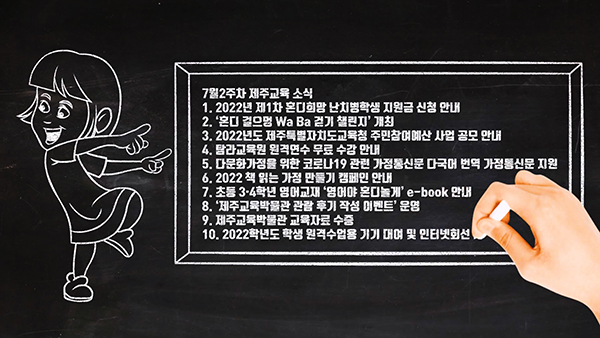 7월2주차 제주교육 소식
1. 2022년 제1차 혼디희망 난치병학생 지원금 신청 안내
2. ‘혼디 걸으멍 Wa Ba 걷기 챌린지’ 개최
3. 2022년도 제주특별자치도교육청 주민참여예산 사업 공모 안내
4. 탐라교육원 원격연수 무료 수강 안내
5. 다문화가정를 위한 코로나19 관련 가정통신문 다국어 번역 가정통신문 지원
6. 2022 책 읽는 가정 만들기 캠페인 안내
7. 초등 3·4학년 영어교재 ‘영어야 혼디놀게’ e-book 안내
8. ‘제주교육박물관 관람 후기 작성 이벤트’ 운영
9. 제주교육박물관 교육자료 수증
10. 2022학년도 학생 원격수업용 기기 대여 및 인터넷회선